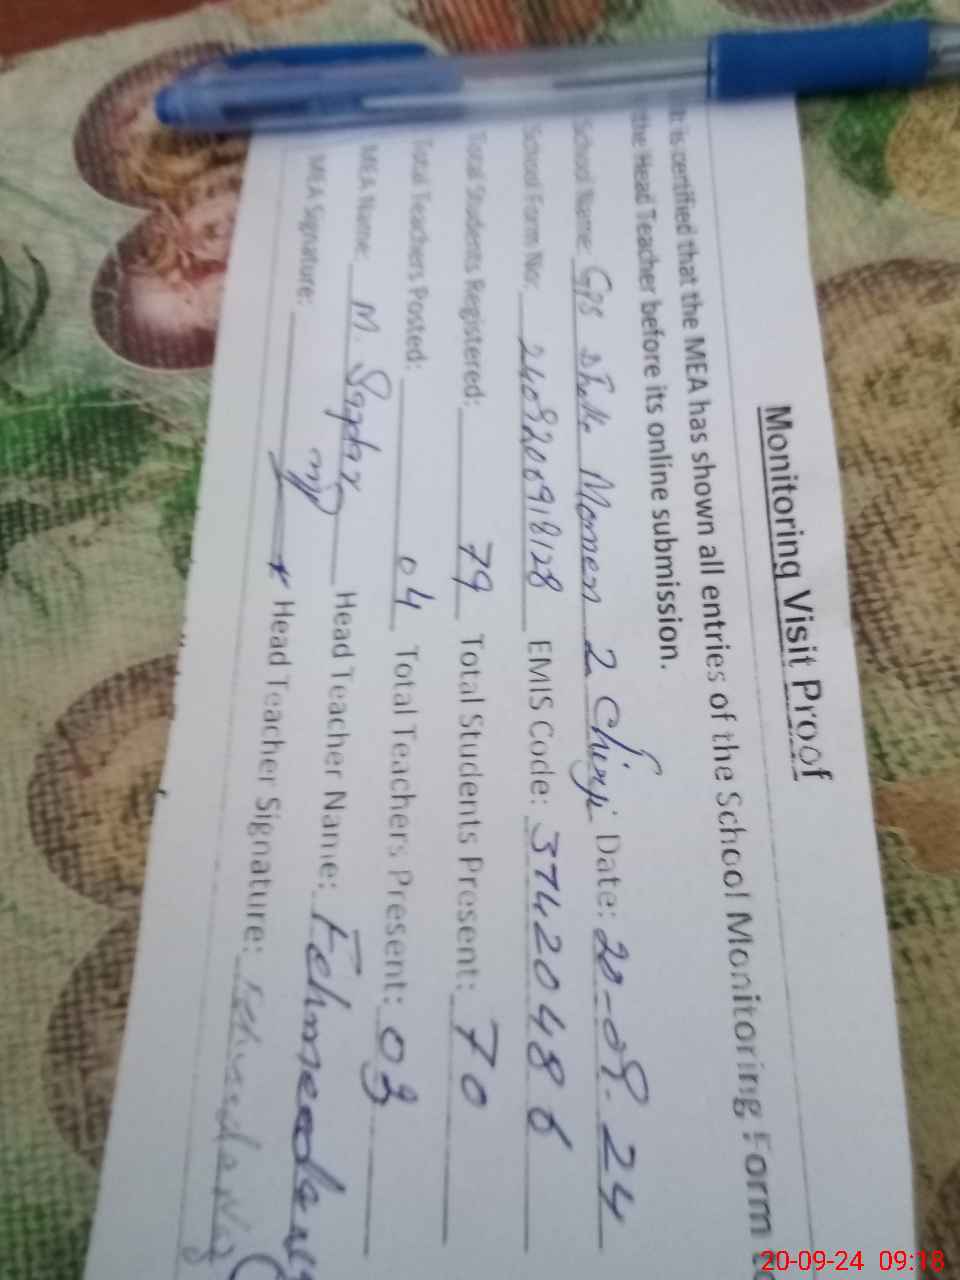 Monitoring Visit Proof
It is certified that the MEA has shown all entries of the School Monitoring Form to
the Head Teacher before its online submission.
School Name: GPS Momen 2 Date: 20-09-24
School Form No: EMIS Code: 37420486
Total Students Registered: 79 Total Students Present: 70
Total Teachers Posted: 04 Total Teachers Present: 03
MEA Name: M. Head Teacher Name: Fehmeeda
MEA Signature: Head Teacher Signature:
20-09-24 09:18